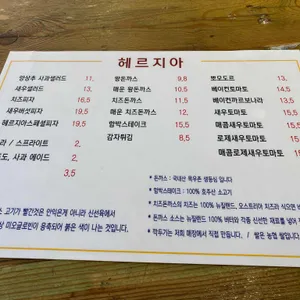 헤르지아
양상추 사과샐러드 11,
새우샐러드 13,
치즈피자 16,5
새우버섯피자 19,5
헤르지아스페셜피자 19,5
라 / 스프라이트 2,
도, 사과 에이드 2,
3,5
왕돈까스 9,8
매운 왕돈까스 10,5
치즈돈까스 11,5
매운 치즈돈까스 12,5
함박스테이크 15,5
감자튀김 8,5
뽀모도르 13,
베이컨토마토 14,
베이컨까르보나라 13,5
새우토마토 15,5
매콤새우토마토 15,5
로제새우토마토 15,5
매콤로제새우토마토
* 돈까스 : 국내산 목우촌 생등심 입니다
* 함박스테이크 : 100% 호주산 소고기
* 치즈돈까스의 치즈는 100% 뉴질랜드, 오스트리아 치즈라 식으면
* 돈까스 소스는 뉴질랜드 100% 버터와 각종 신선한 재료를 넣어
* 깍두기는 저희 매장에서 직접 만듭니다. / 쌀은 농협 쌀입니다.
스 고기가 빨간것은 안익은게 아니라 신선육에서
상 미오글로빈이 응축되어 붉은 색이 나는 것입니다.